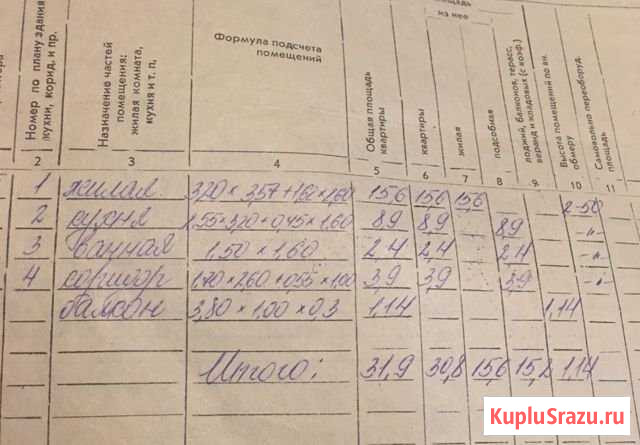 площадь
из нее
Номер по плану здания
кухни, корид. и пр.
Назначение частей
помещения:
жилая комната,
кухня и т. п.
Формула подсчета
помещений
Общая площадь
квартиры
квартиры
жилая
подсобная
лоджий, балконов, террас,
веранд и кладовых (с коэф.)
Высота помещений по вн.
обмеру
Самовольно переоборуд.
площадь
2 3 4 5 6 7 8 9 10 11
1 жилая 3,20 × 3,57 + 1,60 × 1,60 15,6 15,6 15,6 2-50
2 кухня 1,55 × 3,20 + 0,45 × 1,60 8,9 8,9 8,9 -"-
3 ванная 1,50 × 1,60 2,4 2,4 2,4 -"-
4 коридор 1,70 × 2,60 + 0,55 × 1,00 3,9 3,9 3,9 -"-
балкон 3,80 × 1,00 × 0,3 1,14 1,14
Итого: 31,9 30,8 15,6 15,2 1,14
KupluSrazu.ru